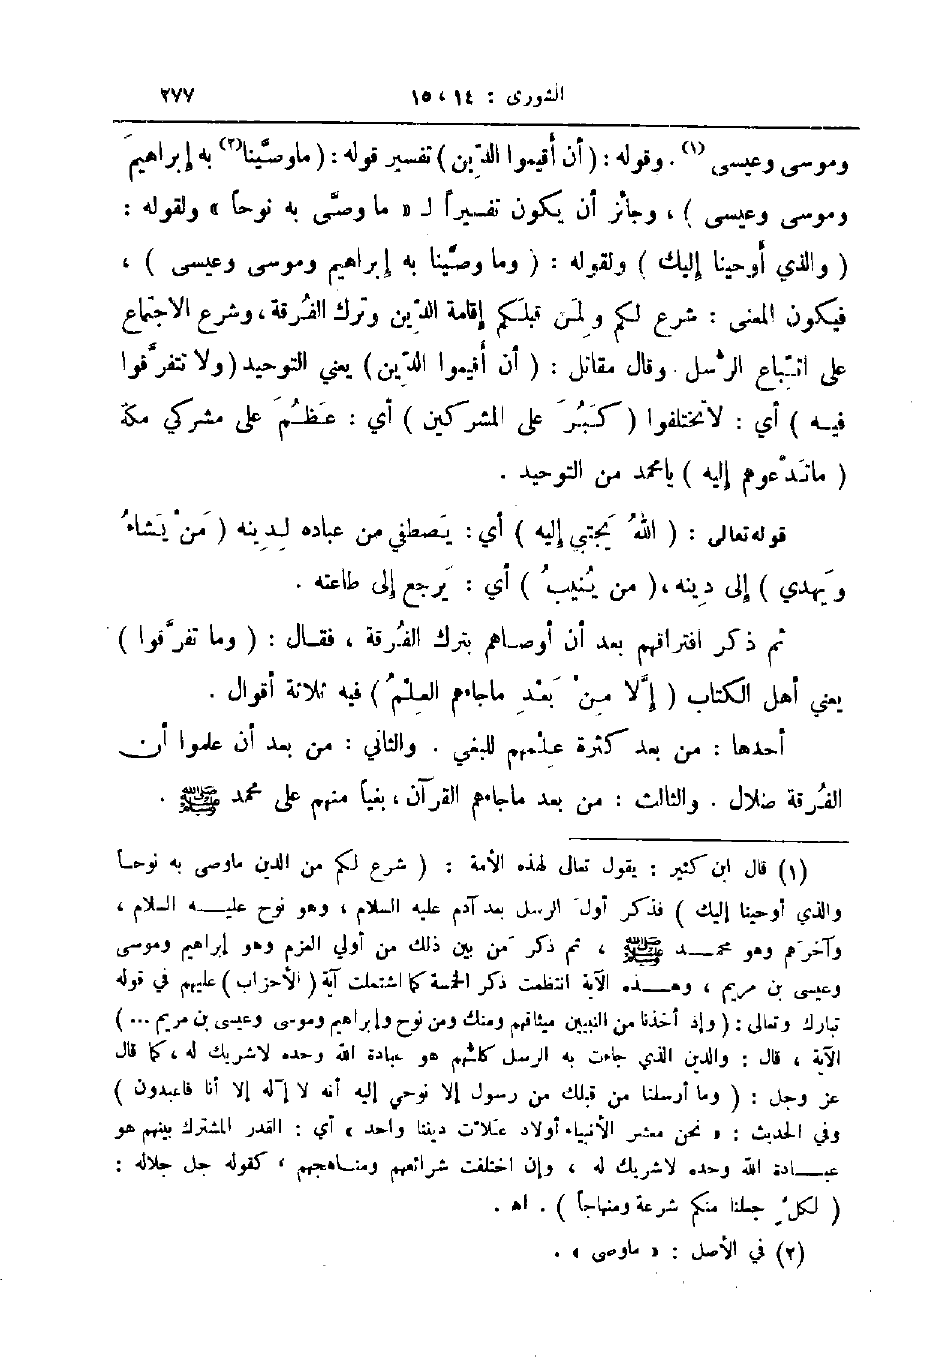 الشورى : ١٤ ، ١٥ ٢٧٧
وموسى وعيسى (١) . وقوله : ( أن أقيموا الدِّين ) تفسير قوله : ( ماوصَّينا(٢) به إبراهيمَ
وموسى وعيسى ) ، وجائز أن يكون تفسيراً لـ « ما وصَّى به نوحاً » ولقوله :
( والذي أوحينا إليك ) ولقوله : ( وما وصَّينا به إبراهيم وموسى وعيسى ) ،
فيكون المعنى : شرع لكم ولمن قبلَكم إقامة الدِّين وترك الفُرقة ، وشرع الاجتماع
على اتِّباع الرُّسل . وقال مقاتل : ( أن أقيموا الدِّين ) يعني التوحيد ( ولا تتفرَّقوا
فيـه ) أي : لاتختلفوا ( كَبُرَ على المشركين ) أي : عَظُمَ على مشركي مكة
( ماتَدْعوهم إليه ) يامحمد من التوحيد .
قوله تعالى : ( اللهُ يَجتبي إليه ) أي : يَصطفي من عباده لِدِينه ( مَنْ يَشاءُ
ويَهدي ) إلى دِينه ، ( من يُنيبُ ) أي : يَرجع إلى طاعته .
ثم ذكر افتراقهم بعد أن أوصاهم بترك الفُرقة ، فقـال : ( وما تفرَّقوا )
يعني أهل الكتاب ( إلَّا مِنْ بَعْدِ ماجاءهم العِلْمُ ) فيه ثلاثة أقوال .
أحدها : من بعد كثرة عِلْمهم للبغي . والثاني : من بعد أن علموا أن
الفُرقة ضلال . والثالث : من بعد ماجاءهم القرآن ، بغياً منهم على محمد ﷺ .
(١) قال ابن كثير : يقول تعالى لهذه الأمة : ( شرع لكم من الدين ماوصى به نوحـاً
والذي أوحينا إليك ) فذكر أولَ الرسل بعد آدم عليه السلام ، وهو نوح عليـه السلام ،
وآخرَهم وهو محمـد ﷺ ، ثم ذكر مَن بين ذلك من أولي العزم وهو إبراهيم وموسى
وعيسى بن مريم ، وهـذه الآية انتظمت ذكر الخمسة كما اشتملت آية ( الأحزاب ) عليهم في قوله
تبارك وتعالى : ( وإذ أخذنا من النبيين ميثاقهم ومنك ومن نوح وإبراهيم وموسى وعيسى بن مريم ... )
الآية ، قال : والدين الذي جاءت به الرسل كلُّهم هو عبادة الله وحده لاشريك له ، كما قال
عز وجل : ( وما أرسلنا من قبلك من رسول إلا نوحي إليه أنه لا إله إلا أنا فاعبدون )
وفي الحديث : « نحن معشر الأنبياء أولاد علات ديننا واحد » أي : القدر المشترك بينهم هو
عبـادة الله وحده لاشريك له ، وإن اختلفت شرائعهم ومناهجهم ، كقوله جل جلاله :
( لكلٍّ جعلنا منكم شرعة ومنهاجاً ) . اهـ .
(٢) في الأصل : « ماوصى » .